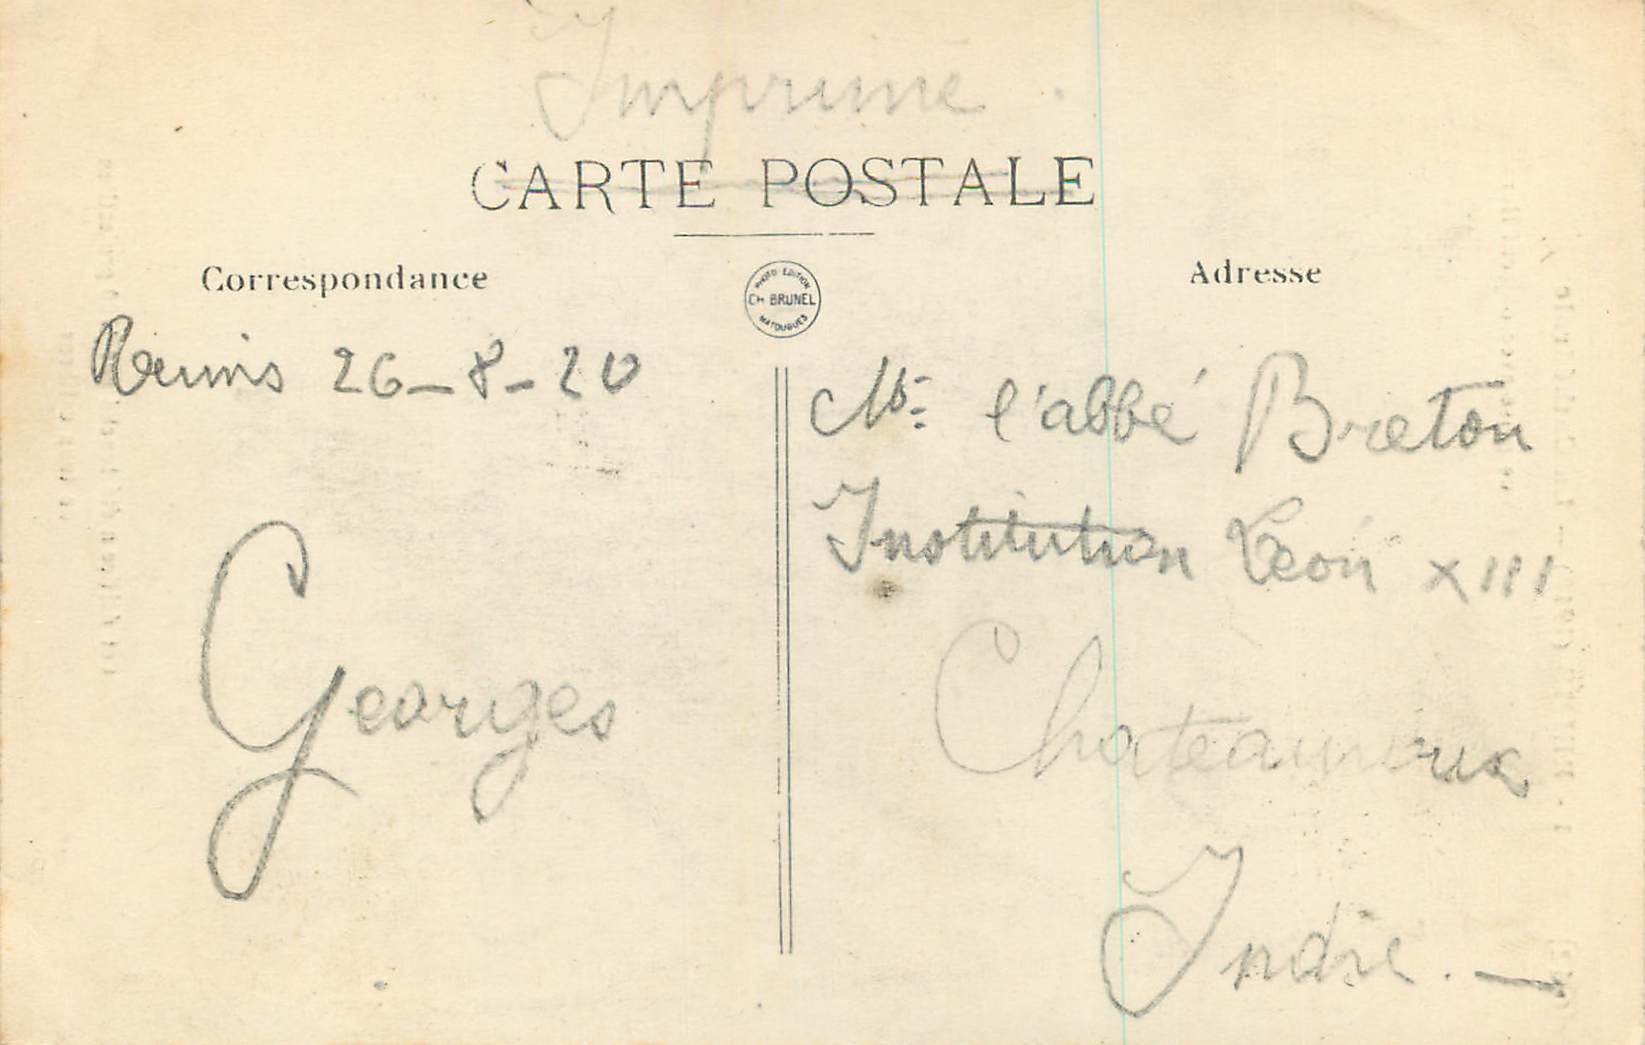 Imprimé
CARTE POSTALE
Correspondance
Adresse
PHOTO-EDITION
CH. BRUNEL
MATOUGUES
Reims 26-8-20
Georges
Mr. l'abbé Breton
Institution Léon XIII
Chateauroux
Indre.